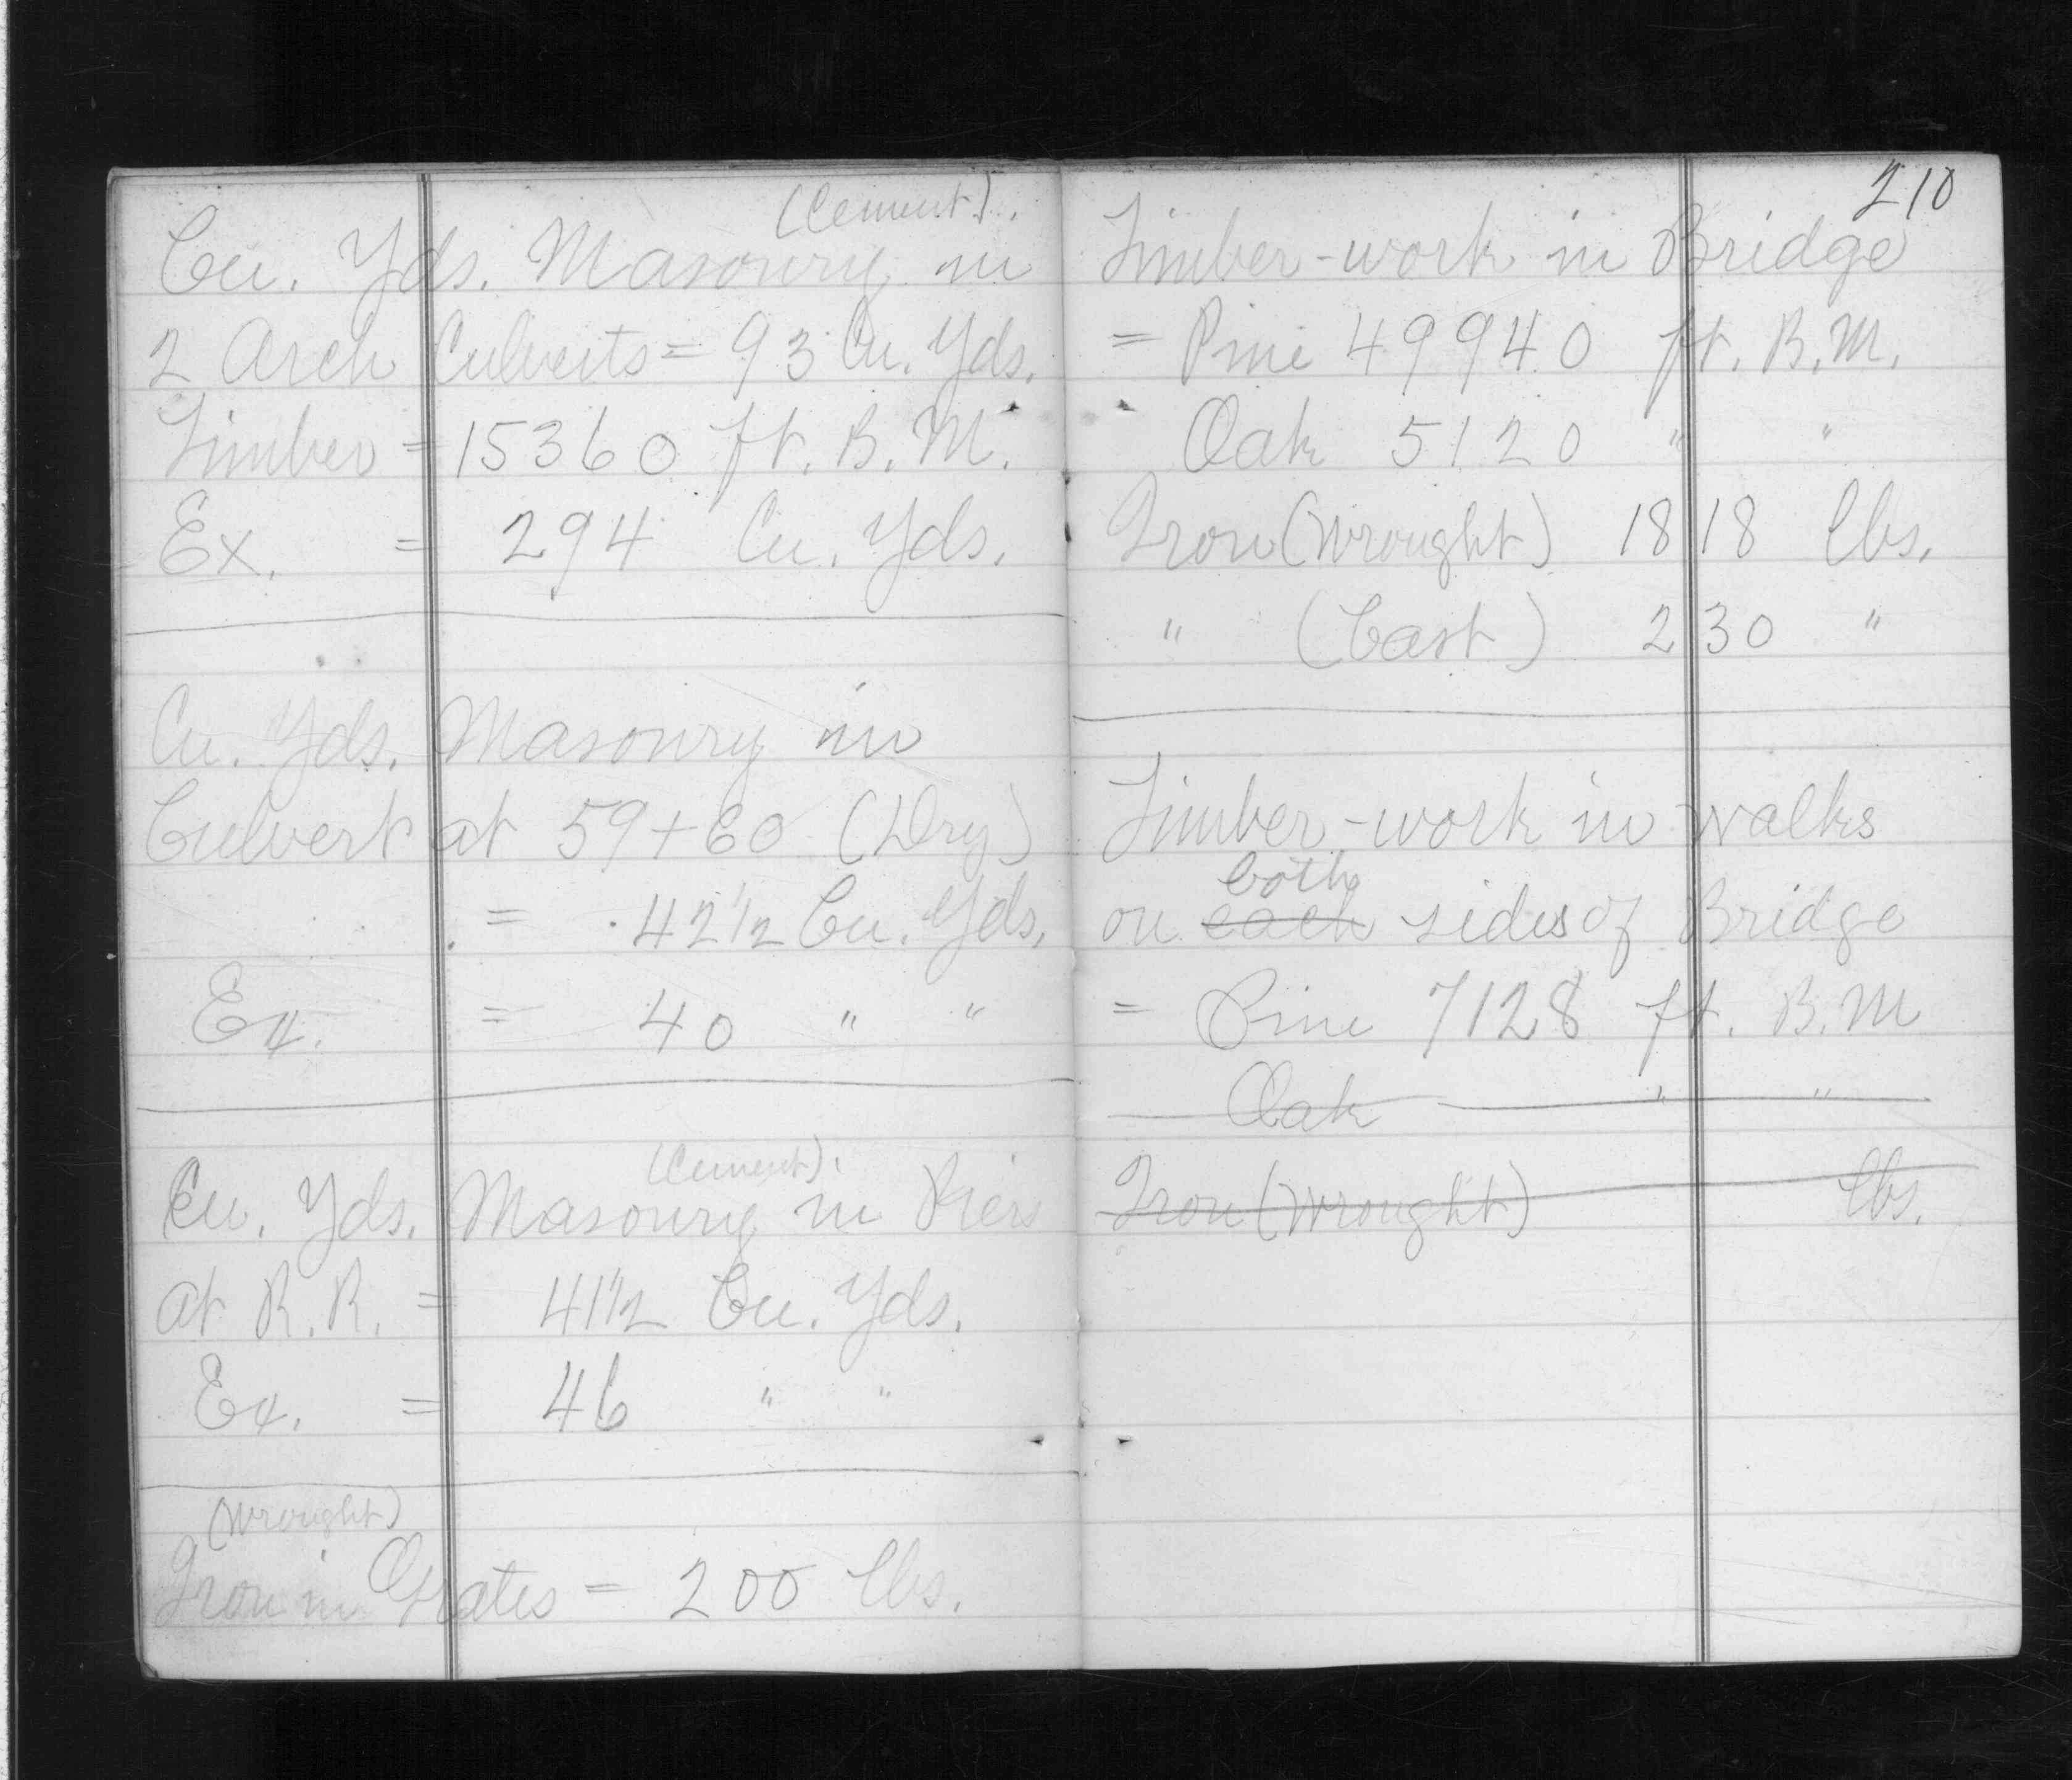 (Cement).
Cu. Yds. Masonry in
2 Arch Culverts = 93 Cu. Yds.
Timber = 15360 ft. B. M.
Ex. = 294 Cu. Yds.
Cu. Yds. Masonry in
Culvert at 59+60 (Dry)
= 42½ Cu. Yds.
Ex. = 40 " "
(Cement).
Cu. Yds. Masonry in Piers
at R. R. = 41½ Cu. Yds.
Ex. = 46 " "
(Wrought)
Iron in Grates = 200 lbs.
210
Timber-work in Bridge
= Pine 49940 ft. B. M.
Oak 5120 " "
Iron (Wrought) 1818 lbs.
" (Cast) 230 "
Timber-work in walks
both
on each sides of Bridge
= Pine 7128 ft. B. M
Oak " "
Iron (Wrought) lbs.